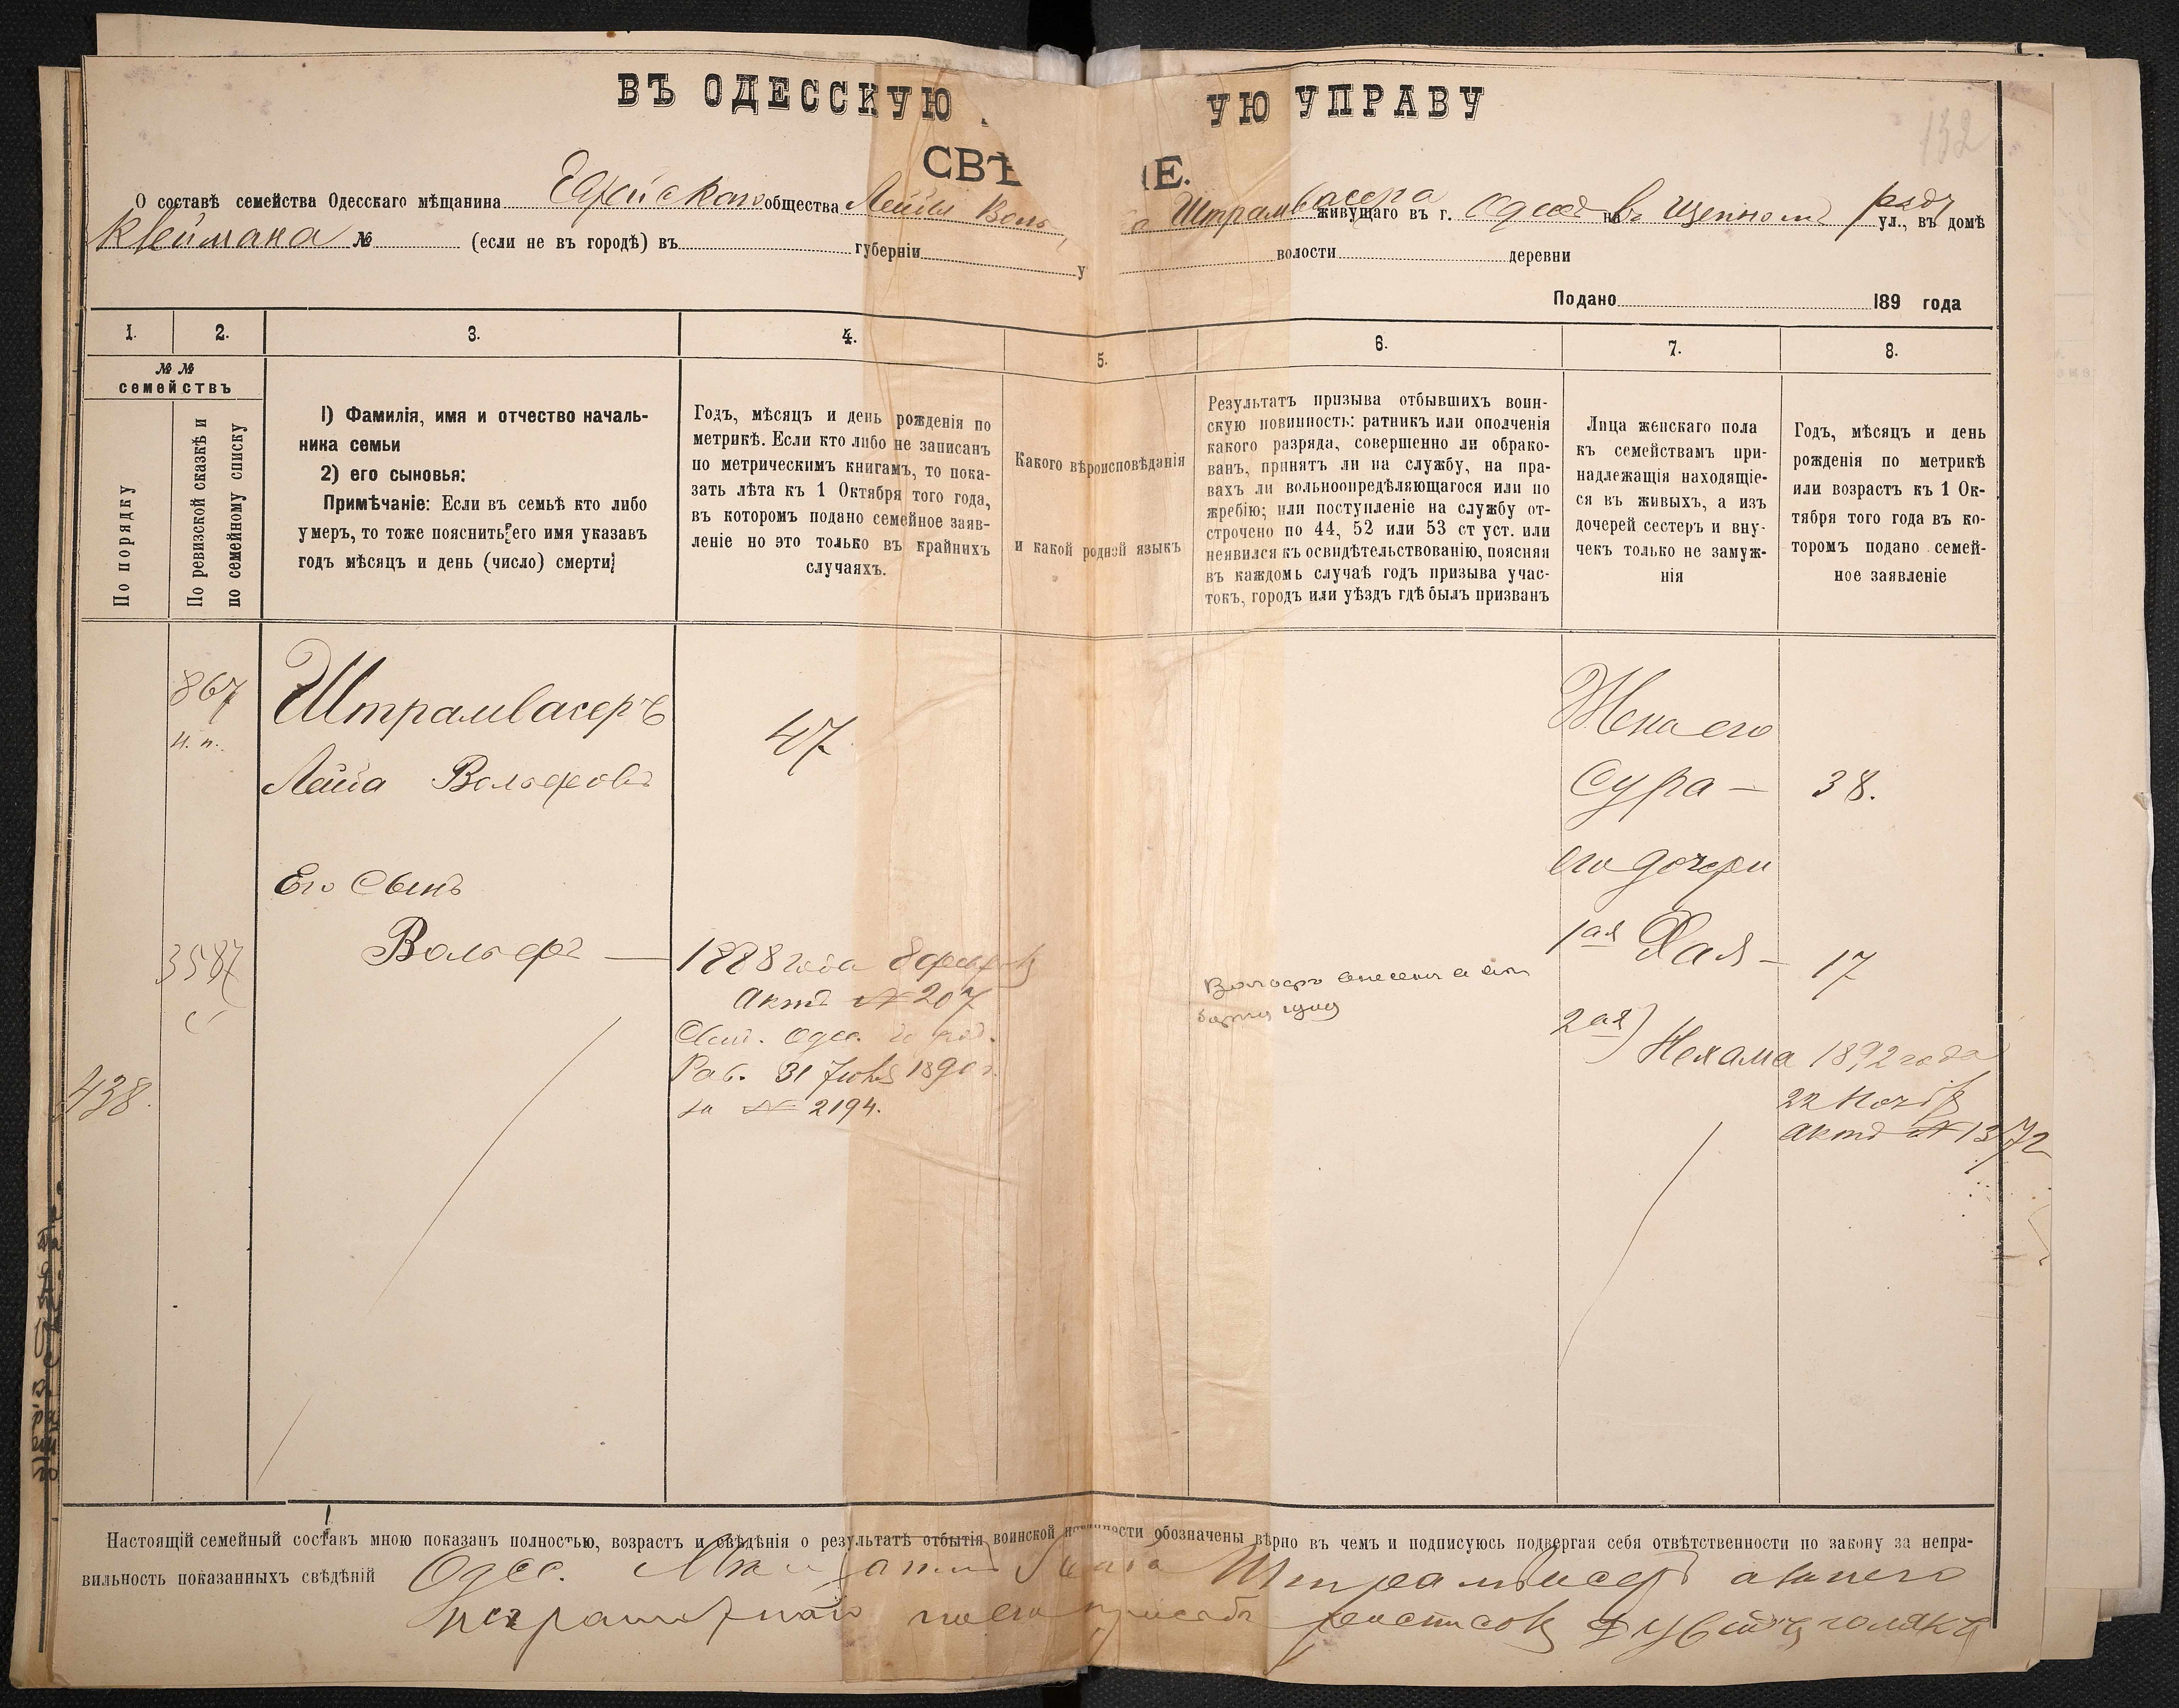 ВЪ ОДЕССКУЮ УЮ УПРАВУ
132
СВѢ ІЕ.
О составѣ семейства Одесскаго мѣщанина общества Лейзи Воль Штрамвасера живущаго въ г. Одессѣ на въ Щепномъ ряду ул., въ домѣ
Клеймана № (если не въ городѣ) въ губерніи у волости деревни
Подано 189 года
1. 2. 3. 4. 5. 6. 7. 8.
№ №
семействъ
По порядку
По ревизской сказкѣ и
по семейному списку
1) Фамилія, имя и отчество началь-
ника семьи
2) его сыновья:
Примѣчаніе: Если въ семьѣ кто либо
умеръ, то тоже пояснить его имя указавъ
годъ мѣсяцъ и день (число) смерти
Годъ, мѣсяцъ и день рожденія по
метрикѣ. Если кто либо не записанъ
по метрическимъ книгамъ, то пока-
зать лѣта къ 1 Октября того года,
въ которомъ подано семейное заяв-
леніе но это только въ крайнихъ
случаяхъ.
Какого вѣроисповѣданія
и какой родной языкъ
Результатъ призыва отбывшихъ воин-
скую повинность: ратникъ или ополченія
какого разряда, совершенно ли обрако-
ванъ, принятъ ли на службу, на пра-
вахъ ли вольноопредѣляющагося или по
жребію; или поступленіе на службу от-
строчено по 44, 52 или 53 ст уст. или
неявился къ освидѣтельствованію, поясняя
въ каждомъ случаѣ годъ призыва учас-
токъ, городъ или уѣздъ гдѣ былъ призванъ
Лица женскаго пола
къ семействамъ при-
надлежащія находящіе-
ся въ живыхъ, а изъ
дочерей сестеръ и вну-
чекъ только не замуж-
нія
Годъ, мѣсяцъ и день
рожденія по метрикѣ
или возрастъ къ 1 Ок-
тября того года въ ко-
торомъ подано семей-
ное заявленіе
867
н. п.
Штрамвасеръ
47
Жена его
Вольфовъ
Сура — 38.
Его Сынъ
его дочери
3587
Вольфъ —
1888 года 8 февраля
1ая Хая — 17
Актъ № 207
2ая) Нехама 1892 года
Раб. 31 1890 г.
438.
за № 2194.
22 Ноября
актъ № 1372
Настоящій семейный составъ мною показанъ полностью, возрастъ и свѣдѣнія о результатѣ отбытія воинской повинности обозначены вѣрно въ чемъ и подписуюсь подвергая себя отвѣтственности по закону за непра-
вильность показанныхъ свѣдѣній Одес. Штрамвасеръ а за него
неграмотнаго